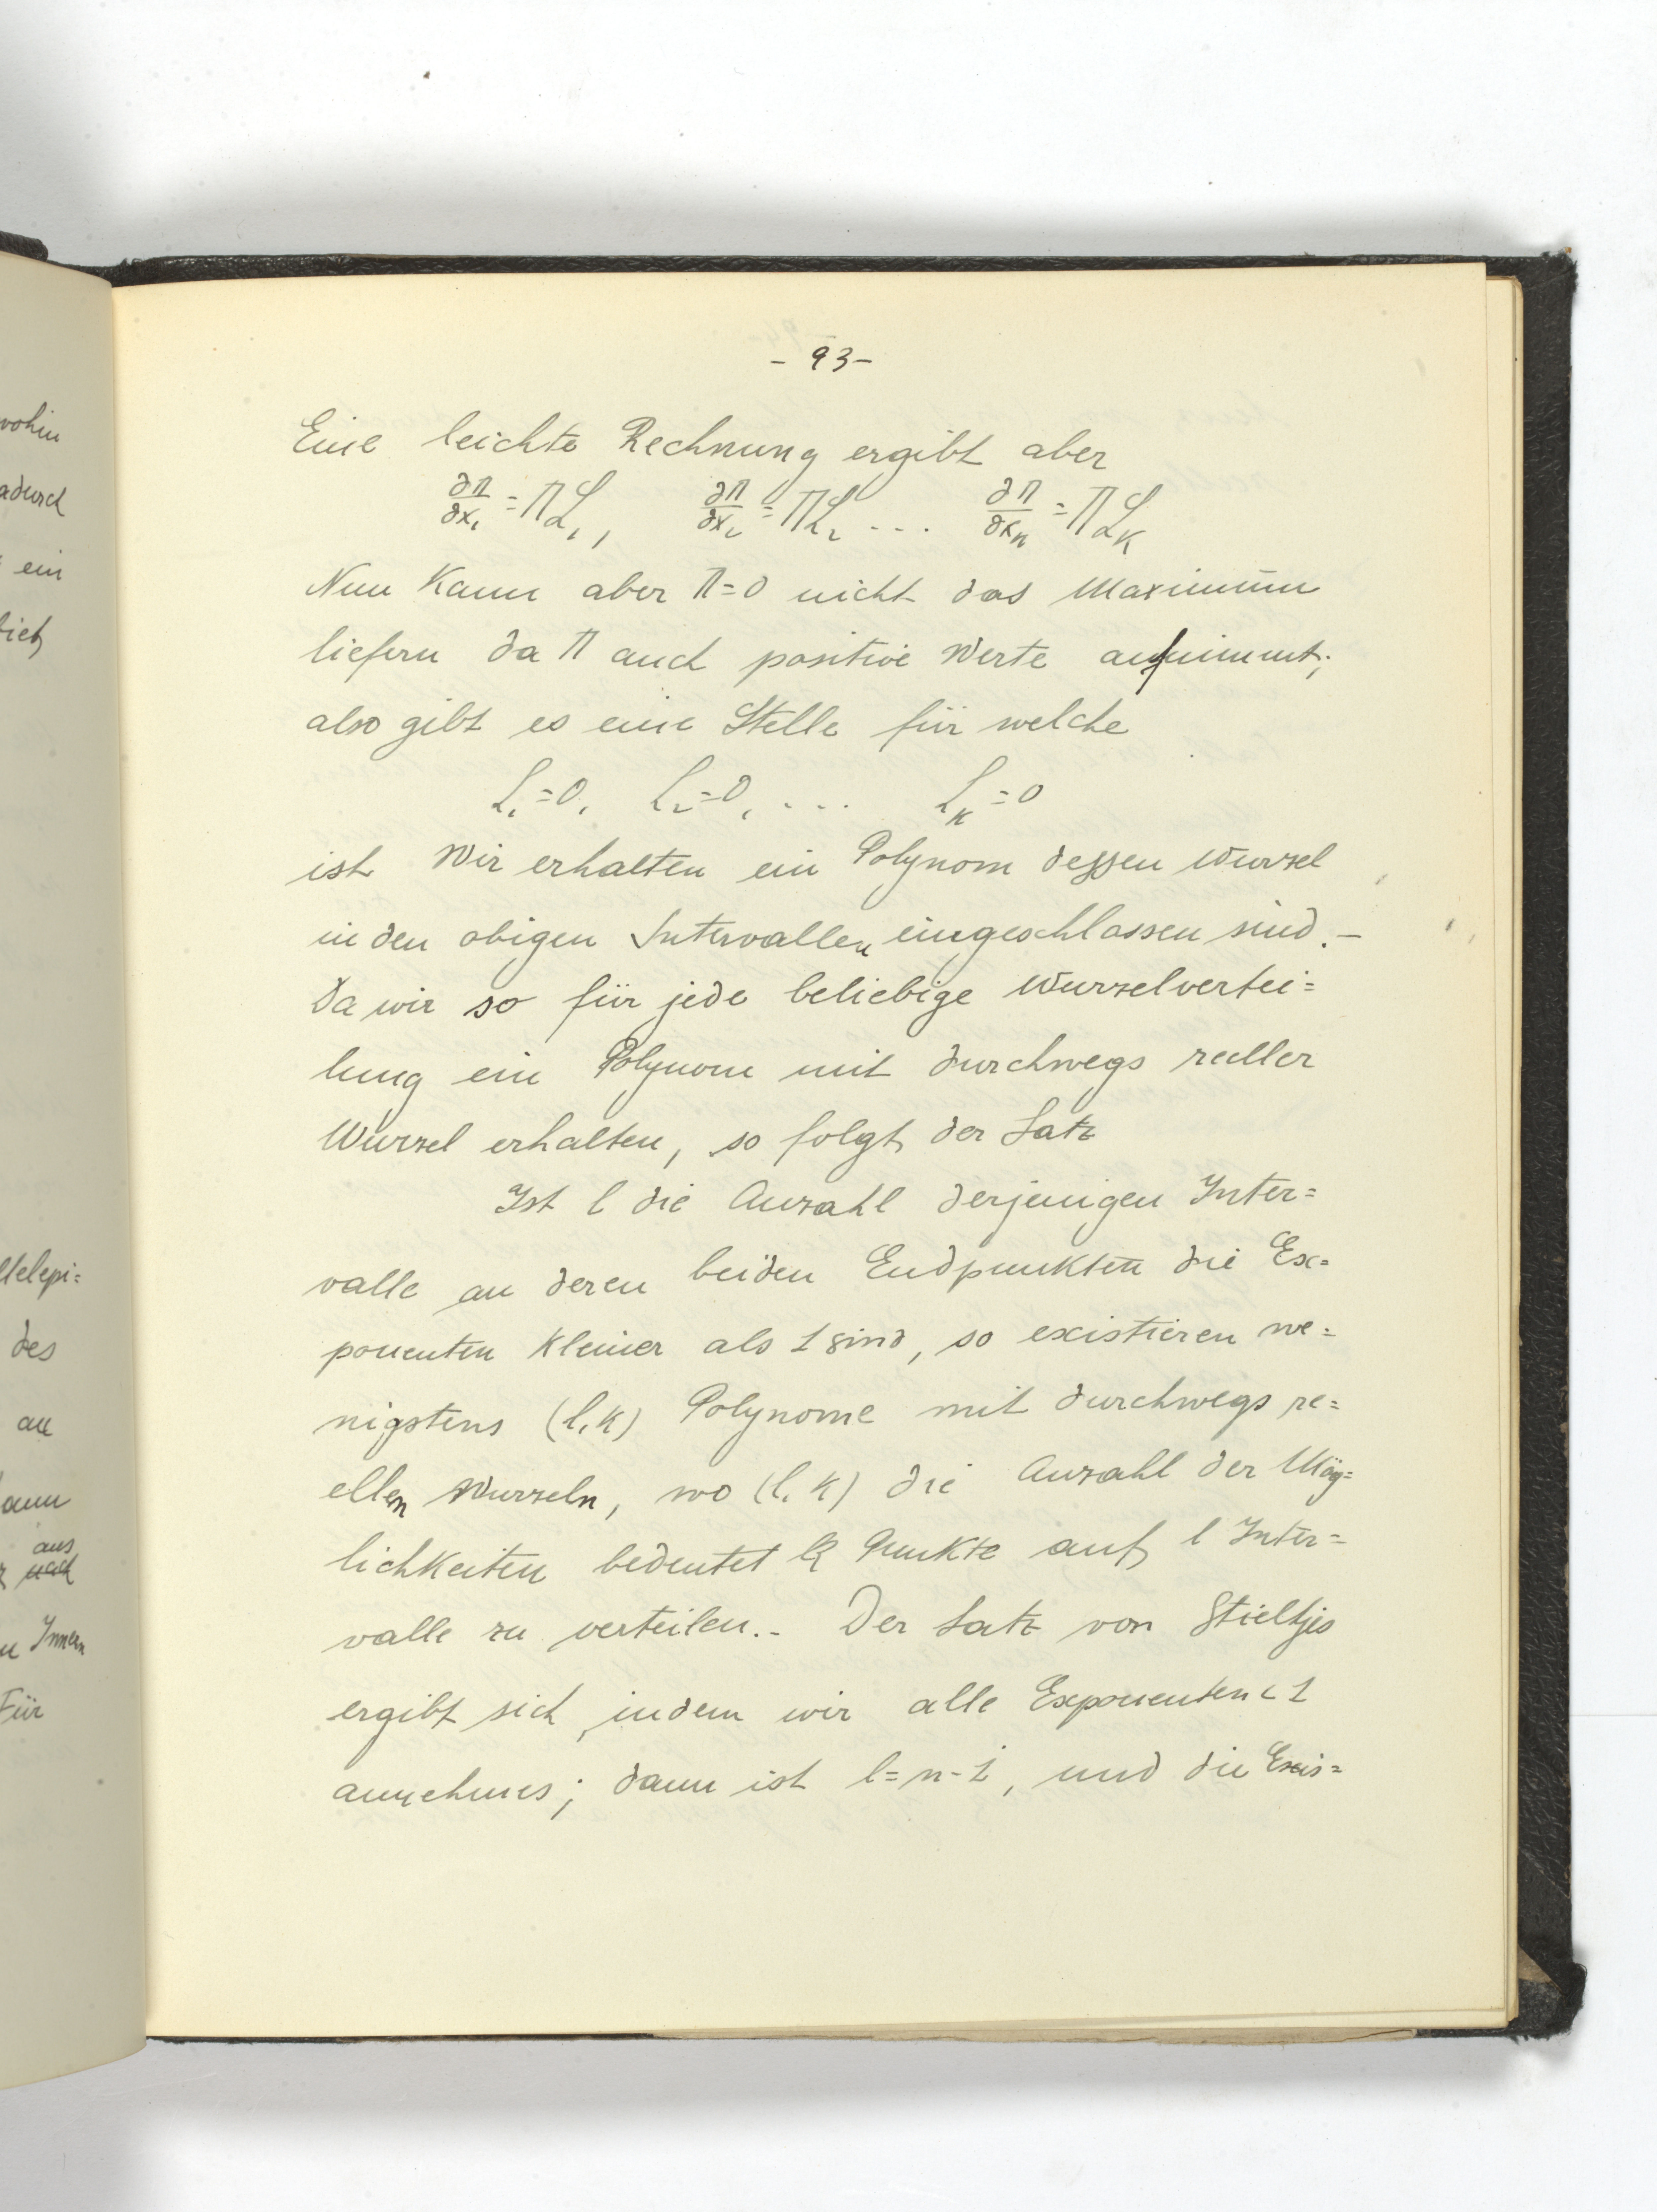 - 93 -
Eine leichte Rechnung ergibt aber
∂Π/∂x₁ = ΠL₁, ∂Π/∂x₂ = ΠL₂ ... ∂Π/∂xₖ = ΠLₖ
Nun kann aber Π=0 nicht das Maximum
liefern da Π auch positive Werte annimmt;
also gibt es eine Stelle für welche
L₁=0, L₂=0, ... Lₖ=0
ist Wir erhalten ein Polynom dessen Wurzel
in den obigen Intervallen eingeschlossen sind.-
Da wir so für jede beliebige Wurzelvertei=
lung ein Polynom mit durchwegs reller
Wurzel erhalten, so folgt der Satz
Ist l die Anzahl derjenigen Inter=
valle an deren beiden Endpunkten die Ex=
ponenten kleiner als 1 sind, so existieren we=
nigstens (l,k) Polynome mit durchwegs re=
ellen Wurzeln, wo (l,k) die Anzahl der Mög=
lichkeiten bedeutet k Punkte auf l Inter=
valle zu verteilen.- Der Satz von Stieltjes
ergibt sich, indem wir alle Exponenten < 1
annehmes; dann ist l=n-1, und die Exis=
wohin
adurch
ein
sich
llelepi=
des
an
ann
aus
u Innern
Für